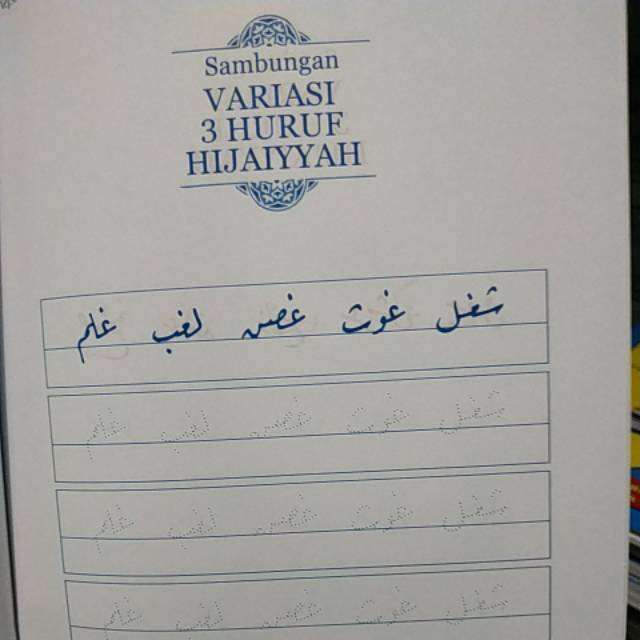 Sambungan
VARIASI
3 HURUF
HIJAIYYAH
شغل غوث غصن لغب غلم
شغل غوث غصن لغب غلم
شغل غوث غصن لغب غلم
شغل غوث غصن لغب غلم